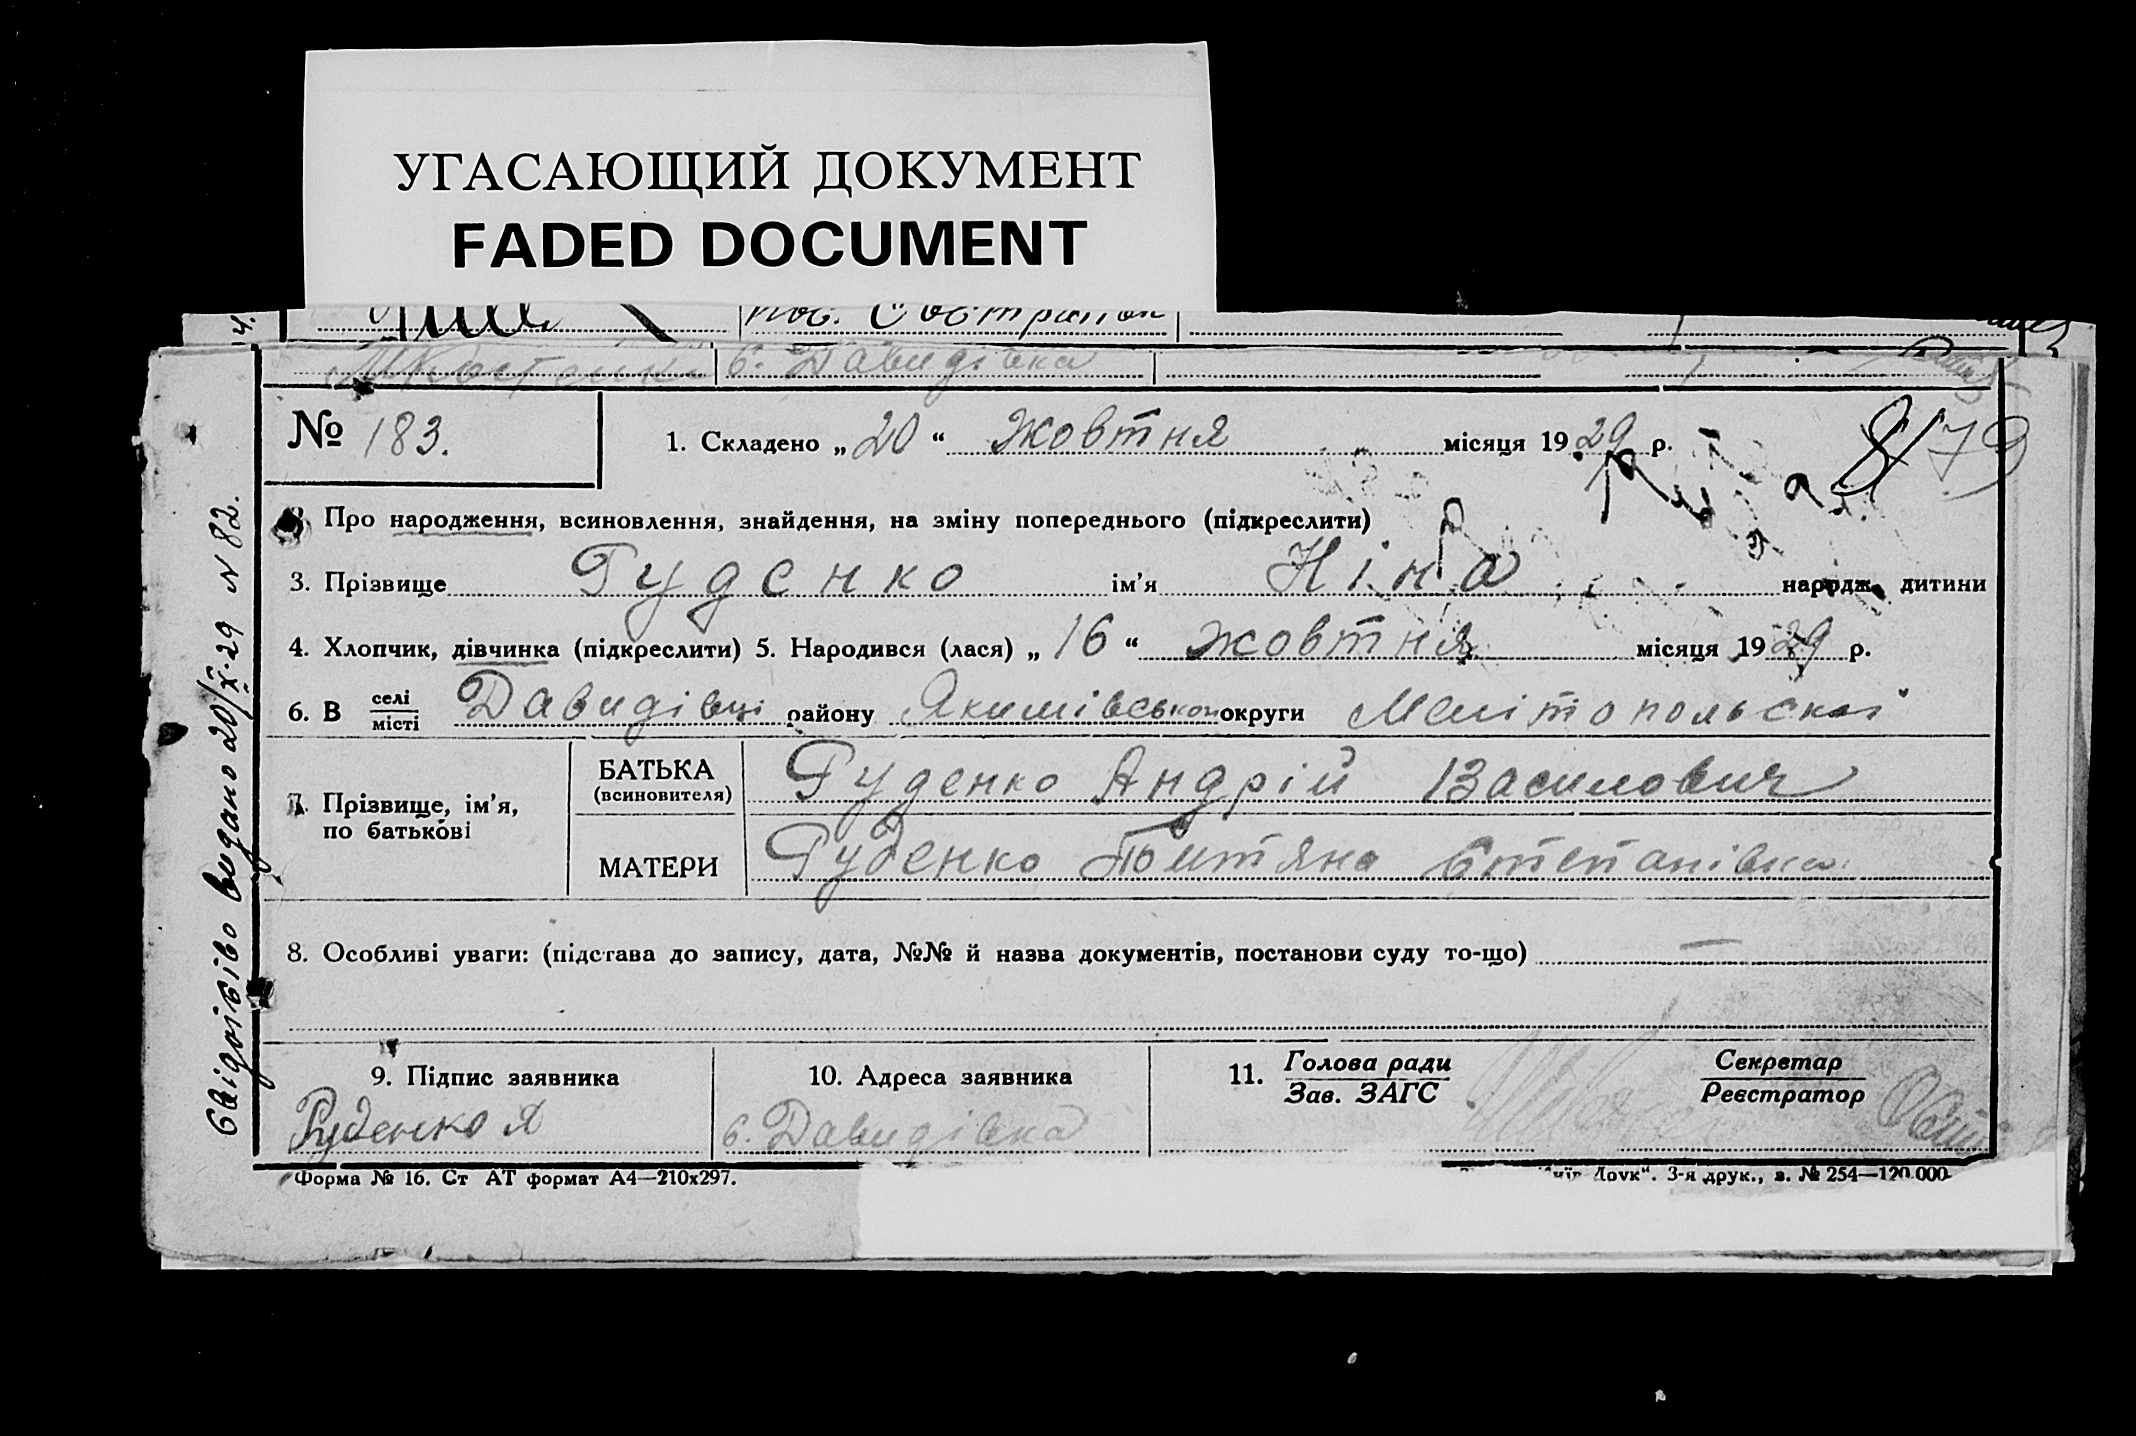 УГАСАЮЩИЙ ДОКУМЕНТ
FADED DOCUMENT
с. Давидівка
№ 183.
1. Складено „20“ Жовтня місяця 1929 р.
79
2. Про народження, всиновлення, знайдення, на зміну попереднього (підкреслити)
3. Прізвище Руденко ім’я Ніна народж. дитини
4. Хлопчик, дівчинка (підкреслити) 5. Народився (лася) „16“ жовтня місяця 1929 р.
6. В селі/місті Давидівці району Якимівської округи Мелітопольскої
7. Прізвище, ім’я, по батькові
БАТЬКА (всиновителя) Руденко Андрій Василович
МАТЕРИ Руденко Титяна Степанівна
8. Особливі уваги: (підстава до запису, дата, №№ й назва документів, постанови суду то-що) —
9. Підпис заявника
10. Адреса заявника
11. Голова ради / Зав. ЗАГС
Секретар / Реєстратор
Руденко А
с. Давидівка
Форма № 16. Ст АТ формат А4—210х297.
Друк“. 3-я друк., з. № 254—120.000
Свідоцтво видано 20/X-29 N 82.